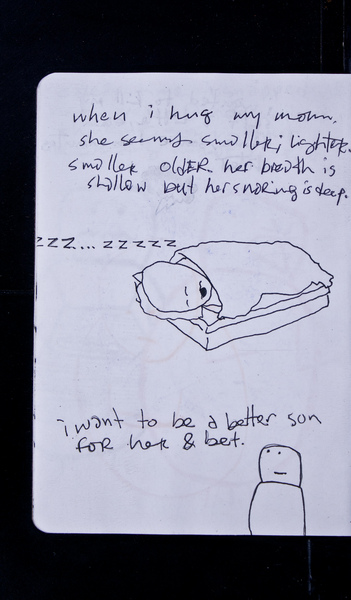 when i hug my mom.
she seems smaller; lighter.
smaller older. her breath is
shallow but her snoring is deep.
ZZZ... ZZZZZ
i want to be a better son
for her & bet.